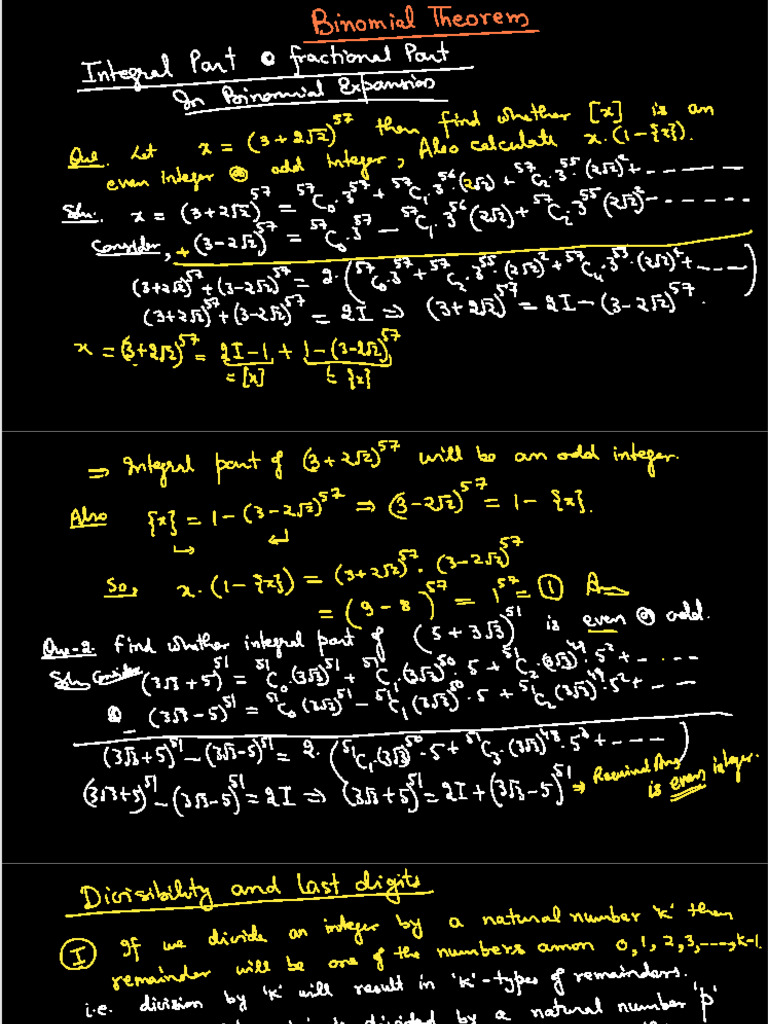 Binomial Theorem
Integral Part & fractional Part
In Binomial Expansion
Que. Let x = (3+2√2)^57 then find whether [x] is an
even integer or odd integer, Also calculate x.(1-{x}).
Soln. x = (3+2√2)^57 = ^57C_0.3^57 + ^57C_1.3^56.(2√2) + ^57C_2.3^55.(2√2)^2 + ------
Consider, + (3-2√2)^57 = ^57C_0.3^57 - ^57C_1.3^56(2√2) + ^57C_2.3^55(2√2)^2 ------
(3+2√2)^57 + (3-2√2)^57 = 2.(^57C_0.3^57 + ^57C_2.3^55.(2√2)^2 + ^57C_4.3^53.(2√2)^4 + ----)
(3+2√2)^57 + (3-2√2)^57 = 2I ⇒ (3+2√2)^57 = 2I - (3-2√2)^57.
x = (3+2√2)^57 = 2I-1 + 1-(3-2√2)^57
= [x] = {x}
⇒ Integral part of (3+2√2)^57 will be an odd integer.
Also {x} = 1-(3-2√2)^57 ⇒ (3-2√2)^57 = 1-{x}.
So, x.(1-{x}) = (3+2√2)^57.(3-2√2)^57
= (9-8)^57 = 1^57 = 1 Ans
Que-2. Find whether integral part of (5+3√3)^51 is even or odd.
Soln Consider (3√3+5)^51 = ^51C_0.(3√3)^51 + ^51C_1.(3√3)^50.5 + ^51C_2.(3√3)^49.5^2 + -----
& - (3√3-5)^51 = ^51C_0(3√3)^51 - ^51C_1(3√3)^50.5 + ^51C_2(3√3)^49.5^2 + ---
(3√3+5)^51 - (3√3-5)^51 = 2.(^51C_1(3√3)^50.5 + ^51C_3.(3√3)^48.5^3 + ----)
(3√3+5)^51 - (3√3-5)^51 = 2I ⇒ (3√3+5)^51 = 2I + (3√3-5)^51 ⇒ Required Ans
is even integer.
Divisibility and last digits
I If we divide an integer by a natural number 'k' then
remainder will be one of the numbers amon 0,1,2,3,----,k-1.
i.e. division by 'k' will result in 'k'-types of remainders.
divided by a natural number 'p'